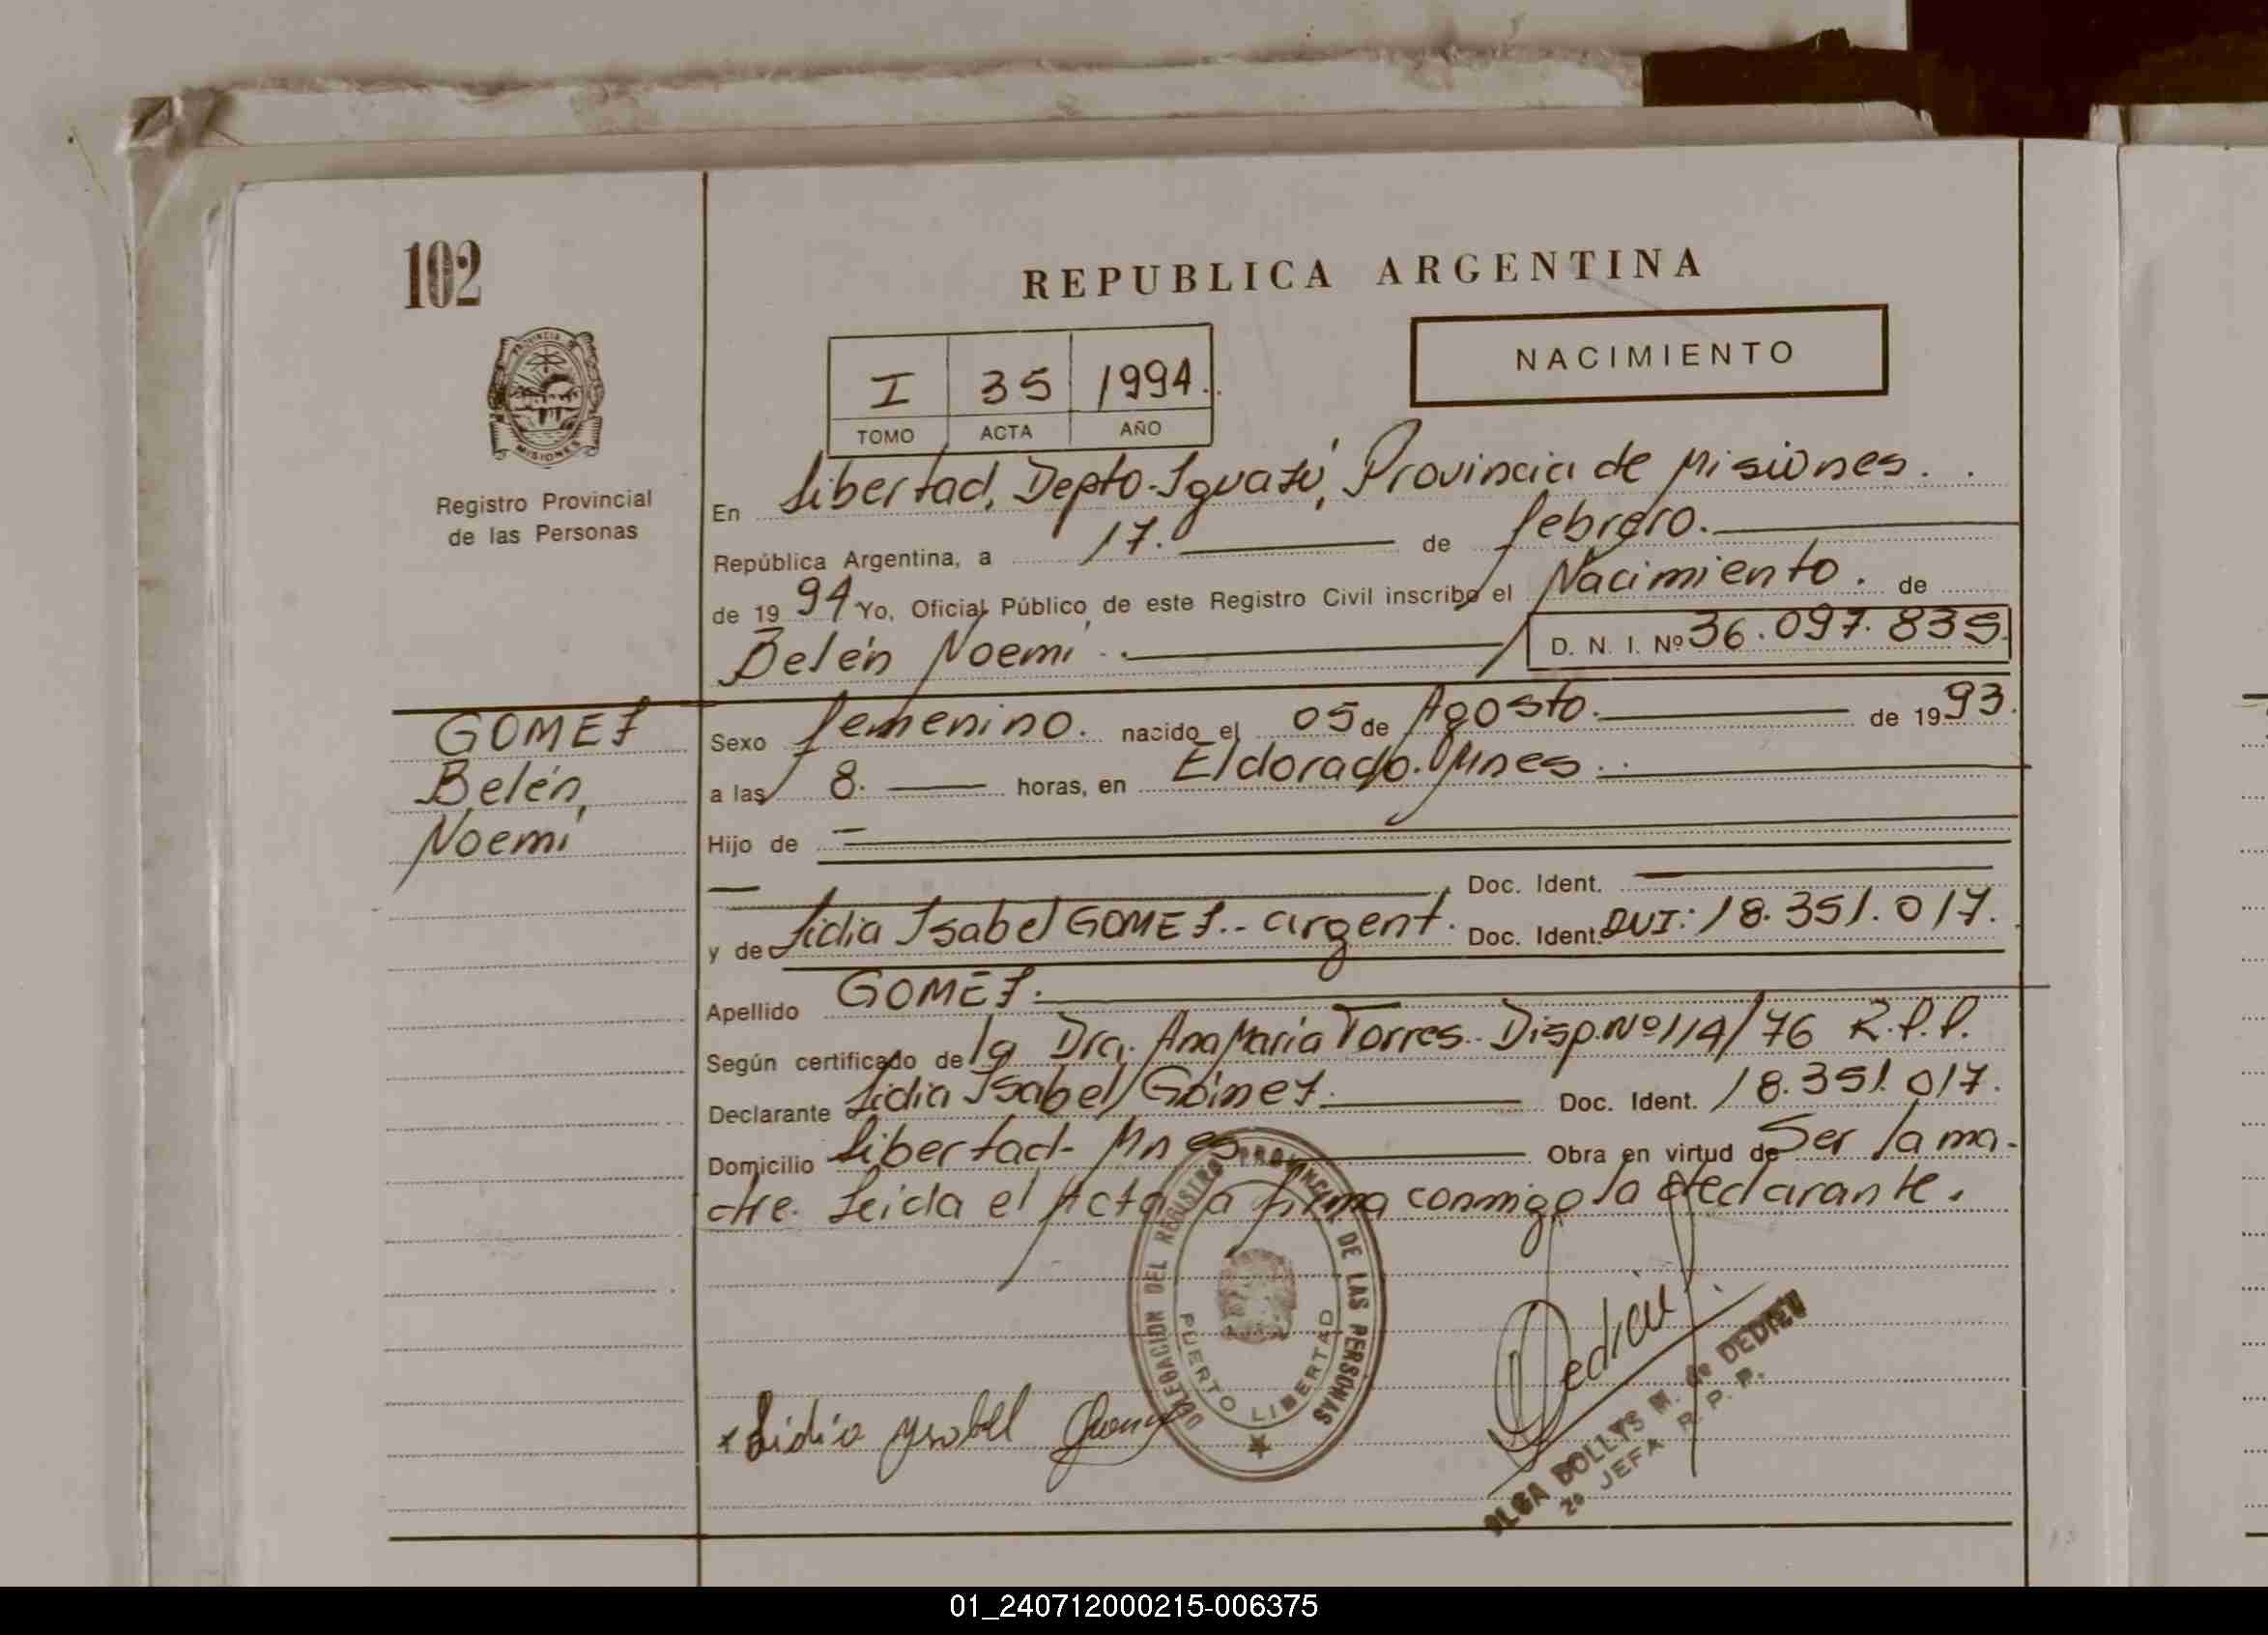 102
REPUBLICA ARGENTINA
NACIMIENTO
I 35 1994.
TOMO ACTA AÑO
PROVINCIA DE
MISIONES
Registro Provincial
de las Personas
En Libertad, Depto. Iguazú, Provincia de Misiones.
República Argentina, a 17. de febrero.
de 1994 Yo, Oficial Público de este Registro Civil inscribo el Nacimiento. de
Belén Noemí D. N. I. Nº 36.097.835.
GOMEZ
Belén,
Noemí
Sexo femenino. nacido el 05 de Agosto. de 1993.
a las 8. horas, en Eldorado. Mnes.
Hijo de
Doc. Ident.
y de Lidia Isabel GOMEZ.- argent. Doc. Ident. DUI: 18.351.017.
Apellido GOMEZ.
Según certificado de la Dra. Ana María Torres. Disp. Nº 114/76 R.P.P.
Declarante Lidia Isabel Gómez. Doc. Ident. 18.351.017.
Domicilio Libertad- Mnes Obra en virtud de Ser la ma-
dre. Leida el Acta, la firma conmigo la declarante.
DELEGACION DEL REGISTRO PROVINCIAL DE LAS PERSONAS
PUERTO LIBERTAD
x Lidia ysabel Gomez
Dedieu
OLGA DOLLYS M. de DEDIEU
2º JEFA R. P. P.
01_240712000215-006375